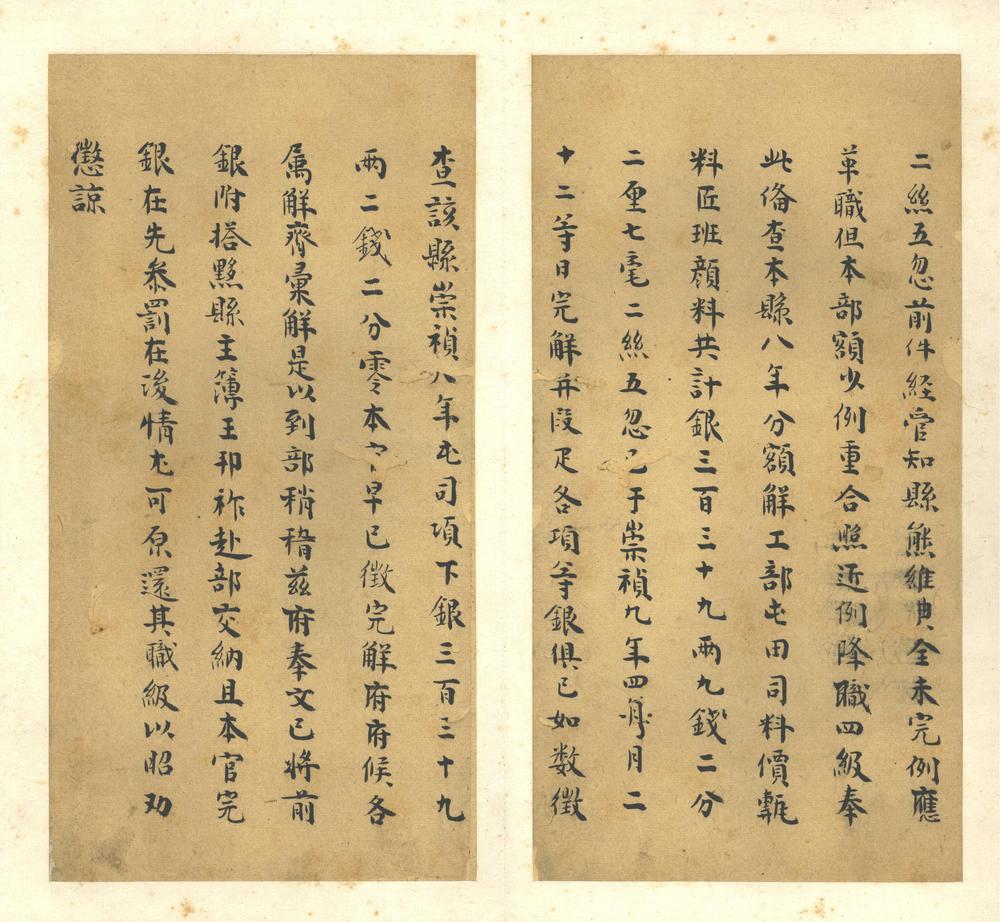 二絲五忽前件経管知縣熊維典全未完例應
革職但本部額少例重合照近例降職四級奉
此俻查本縣八年分額解工部屯田司料價甎
料匠班顔料共計銀三百三十九两九錢二分
二厘七毫二絲五忽已于崇禎九年四月二
十二等日完解并段疋各項等銀俱已如数徵
查該縣崇禎八年屯司項下銀三百三十九
两二錢二分零本早已徵完解府府候各
属解齊彙解是以到部稍稽兹府奉文已將前
銀附搭黟縣主簿王祚赴部交納且本官完
銀在先叅罰在後情尤可原還其職級以昭劝
懲諒